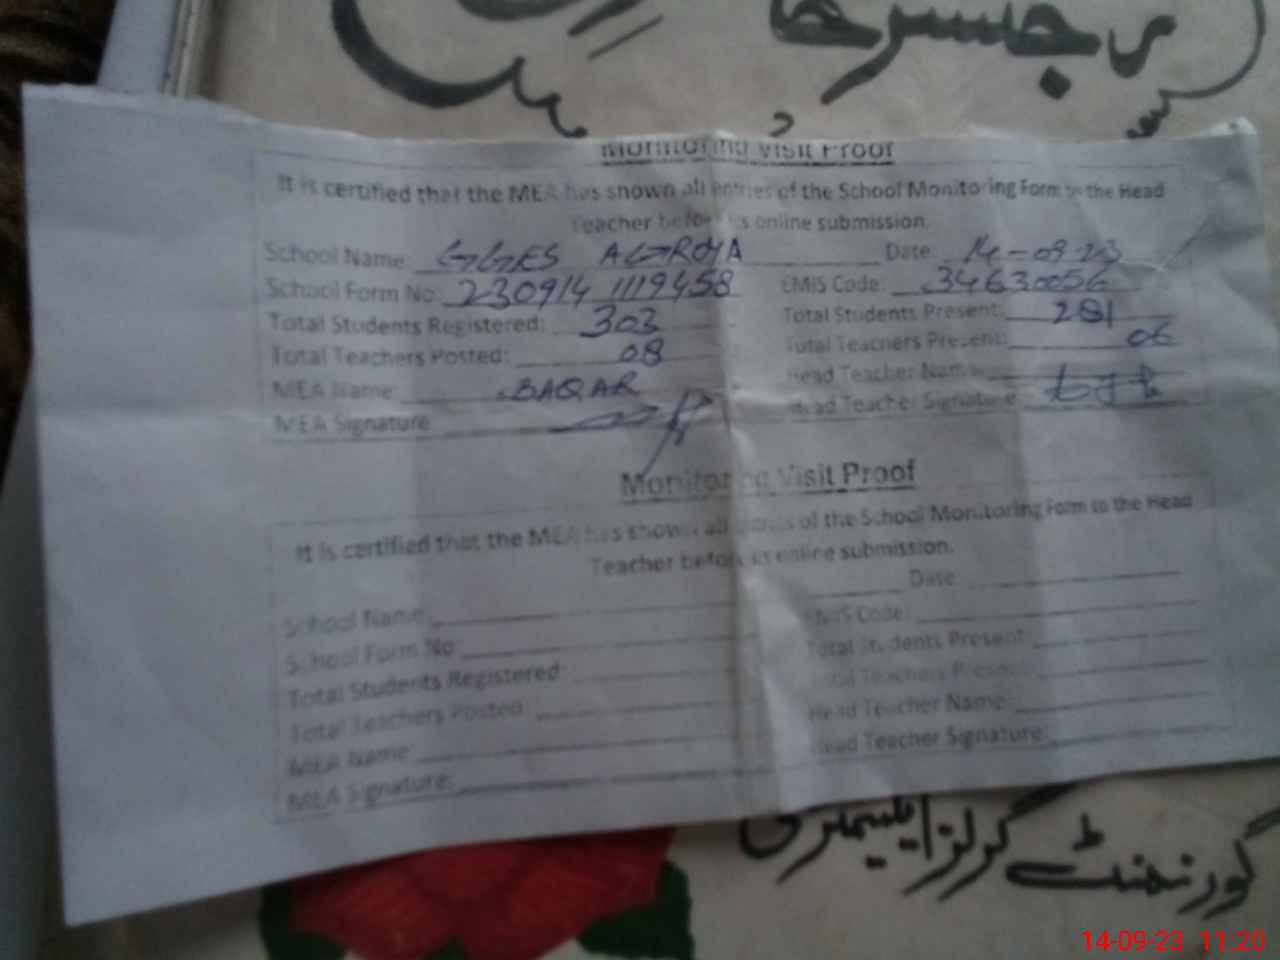 رجسٹر
Monitoring Visit Proof
It is certified that the MEA has shown all entries of the School Monitoring Form to the Head
Teacher before its online submission.
School Name: GGES AGROYA Date: 14-09-23
School Form No: 230914 1119458 EMIS Code: 34630056
Total Students Registered: 303 Total Students Present: 281
Total Teachers Posted: 08 Total Teachers Present: 06
MEA Name: BAQAR Head Teacher Name:
MEA Signature Head Teacher Signature:
Monitoring Visit Proof
It is certified that the MEA has shown all entries of the School Monitoring Form to the Head
Teacher before its online submission.
School Name: Date
School Form No EMIS Code:
Total Students Registered: Total Students Present:
Total Teachers Posted: Total Teachers Present:
MEA Name: Head Teacher Name:
MEA Signature: Head Teacher Signature:
گورنمنٹ گرلز ایلیمنٹری
14-09-23 11:20